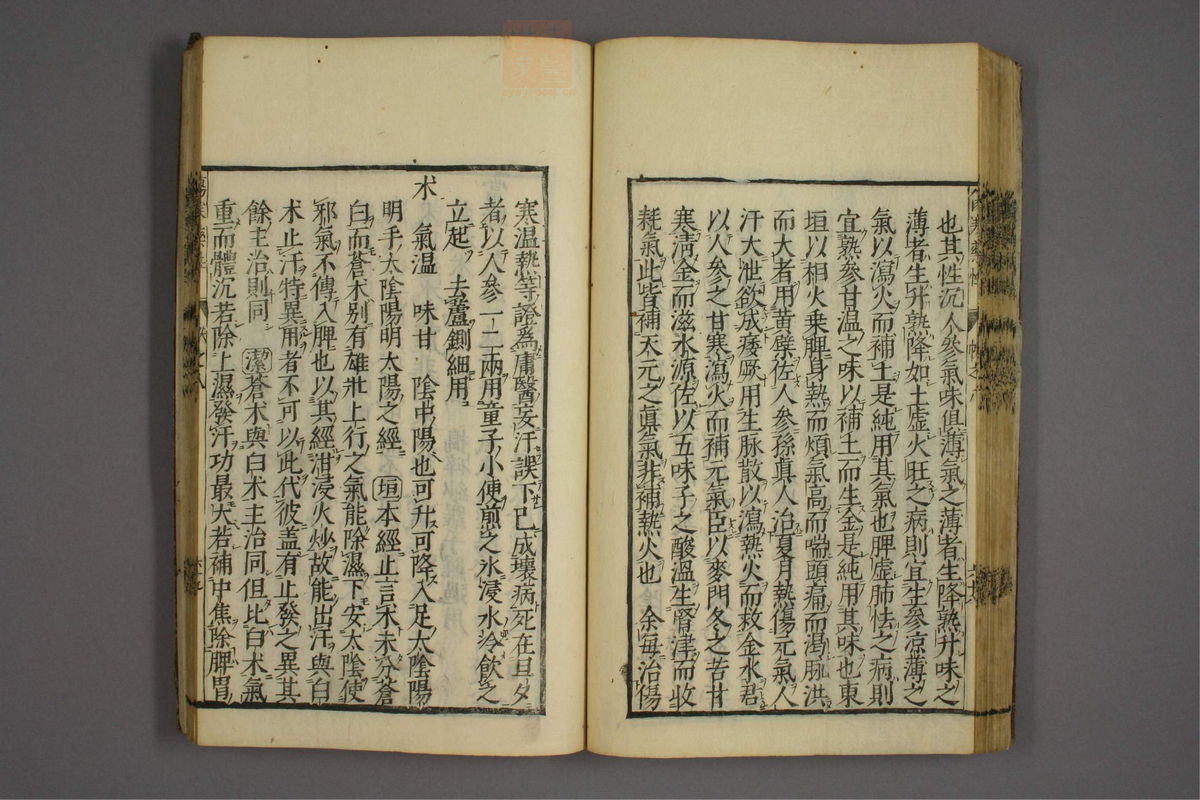 也其性沉人參氣味俱薄氣之薄者生降熟升味之
薄者生升熟降如土虛火旺之病則宜生參涼薄之
氣以瀉火而補土是純用其氣也脾虛肺怯之病則
宜熟參甘温之味以補土而生金是純用其味也東
垣以相火乗脾身熱而煩氣高而喘頭痛而渴脉洪
而大者用黄蘗佐人參孫眞人治夏月熱傷元氣人
汗大泄欲成痿厥用生脉散以瀉熱火而救金水君
以人參之甘寒瀉火而補元氣臣以麥門冬之苦甘
寒淸金而滋水源佐以五味子之酸温生腎津而收
耗氣此皆補天元之眞氣非補熱火也 余每治傷
寒温熱等證爲庸醫妄汗誤下已成壞病死在旦夕
者以人參一二兩用童子小便煎之氷浸水冷飲之
立起 去蘆剉細用
朮 氣温 味甘 陰中陽也可升可降入足太陰陽
明手太陰陽明太陽之經 垣本經止言朮未分蒼
白而蒼朮別有雄壯上行之氣能除濕下安太陰使
邪氣不傳入脾也以其經泔浸火炒故能出汗與白
朮止汗特異用者不可以此代彼盖有止發之異其
餘主治則同 潔蒼朮與白朮主治同但比白朮氣
重而體沉若除上濕發汗功最大若補中焦除脾胃